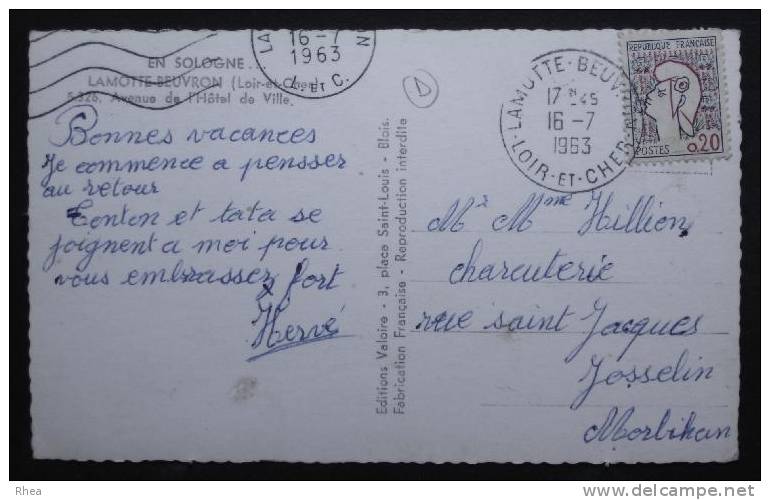 EN SOLOGNE...
LAMOTTE-BEUVRON (Loir-et-Cher)
S.326. Avenue de l'Hôtel de Ville.
16-7
1963
L. ET C.
Bonnes vacances
Je commence a pensser
au retour
Tonton et tata se
joignent a moi pour
vous embrasser fort
Hervé
Editions Valoire - 3, place Saint-Louis - Blois.
Fabrication Française - Reproduction interdite
D
LAMOTTE-BEUV
17H45
16-7
1963
LOIR-ET-CHER
REPUBLIQUE FRANÇAISE
POSTES 0,20
Mr Mme Hillion
charcuterie
rue saint Jacques
Josselin
Morbihan
Rhea
delcampe.net